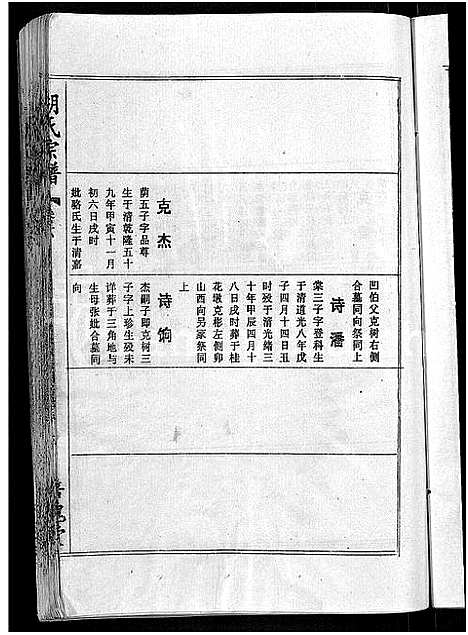 克杰
荫五子字品尊
生于清乾隆五十
九年甲寅十一月
初六日戌时
妣骆氏生于清嘉
凹伯父克树右侧
合墓同向祭同上
诗潘
棠三子字登科生
于清道光八年戊
子四月十四日丑
时殁于清光绪三
十年甲辰四月十
八日戌时葬于桂
花墩克彬左侧卯
山酉向另冢祭同
上
诗饷
杰嗣子即克树三
子字上珍生殁未
详葬于三角地与
生母张妣合墓同
向
胡氏宗谱